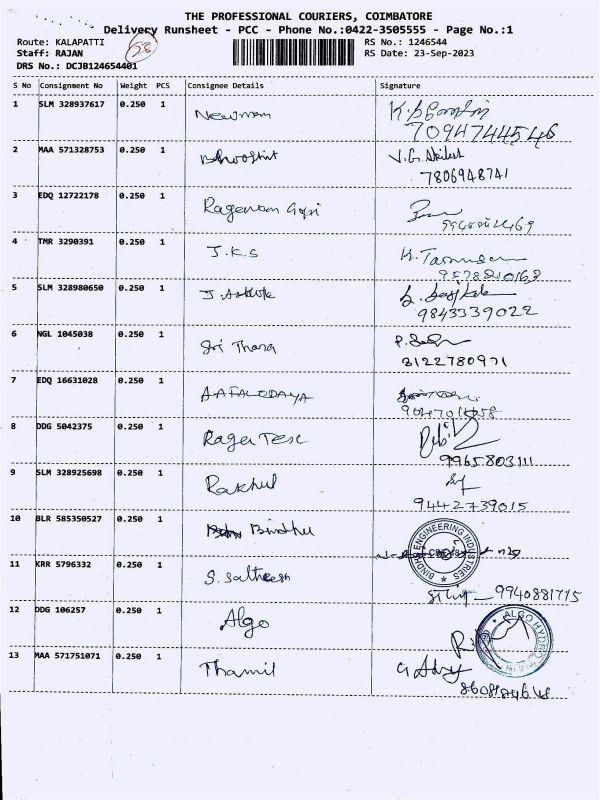 THE PROFESSIONAL COURIERS, COIMBATORE
Delivery Runsheet - PCC - Phone No.:0422-3505555 - Page No.:1
Route: KALAPATTI 58 RS No.: 1246544
Staff: RAJAN RS Date: 23-Sep-2023
DRS No.: DCJB124654401
S No Consignment No Weight PCS Consignee Details Signature
1 SLM 328937617 0.250 1 Newmom
7094744546
2 MAA 571328753 0.250 1 V.G. Akilesh
7806948741
3 EDQ 12722178 0.250 1
4 TMR 3290391 0.250 1 J.K.S
9578210163
5 SLM 328980650 0.250 1 J.
9843339022
6 NGL 1045038 0.250 1 Sri Thara
8122780971
7 EDQ 16631028 0.250 1
8 DDG 5042375 0.250 1
9965803111
9 SLM 328925698 0.250 1 Rakhul
9442739015
10 BLR 585350527 0.250 1 Bindhu
BINDHU ENGINEERING INDUSTRIES
11 KRR 5796332 0.250 1 S. Satheesh
9940881715
12 DDG 106257 0.250 1 Algo
ALGO HYDRO
13 MAA 571751071 0.250 1 Thamil